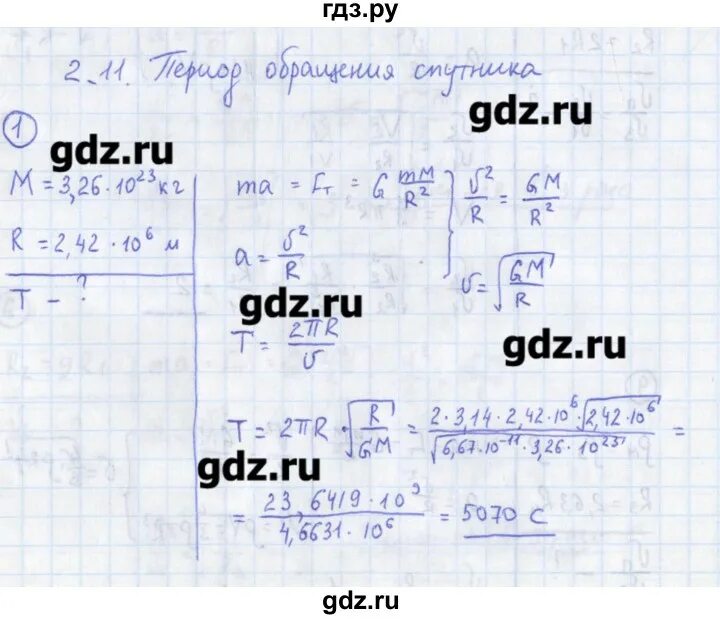 гдз.ру
2.11. Период обращения спутника
gdz.ru
1
gdz.ru
M = 3,26 · 10²³ кг
R = 2,42 · 10⁶ м
T - ?
ma = Fт = G mM/R²
a = υ²/R
υ²/R = GM/R²
υ = √(GM/R)
gdz.ru
T = 2πR/υ
gdz.ru
T = 2πR · √(R/GM) = 2 · 3,14 · 2,42 · 10⁶ · √(2,42 · 10⁶) / √(6,67 · 10⁻¹¹ · 3,26 · 10²³) =
gdz.ru
= 23,6419 · 10⁹ / 4,6631 · 10⁶ = 5070 с
gdz.ru